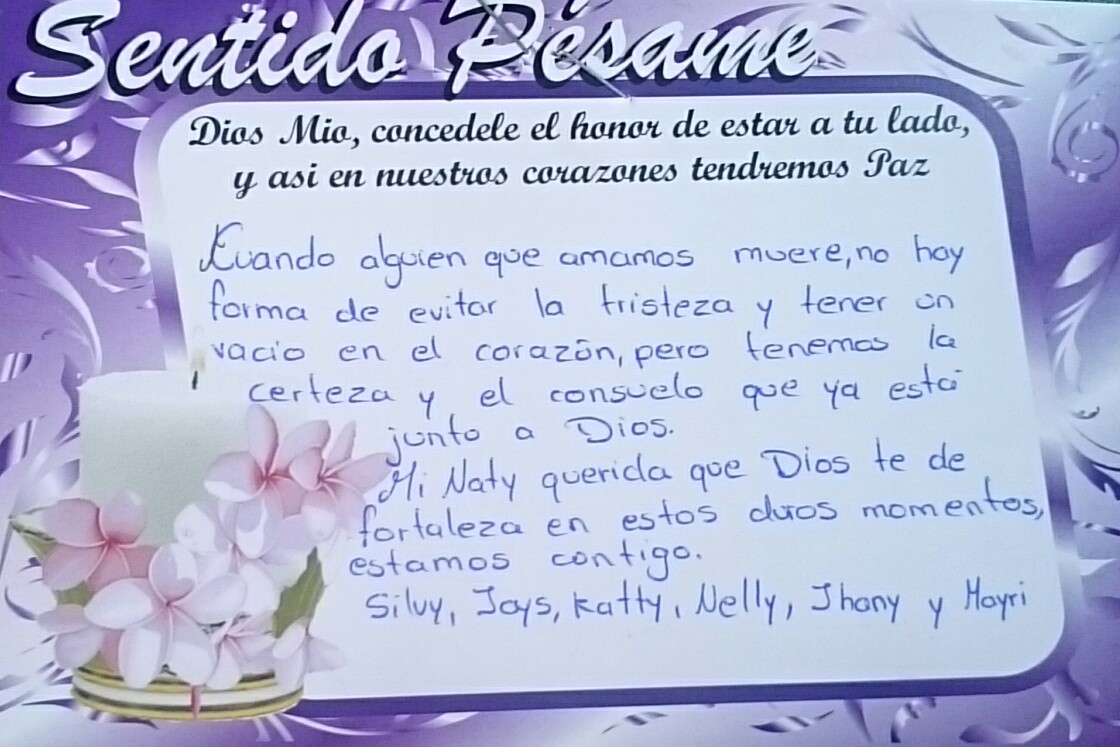 Sentido Pésame
Dios Mio, concedele el honor de estar a tu lado,
y asi en nuestros corazones tendremos Paz
Cuando alguien que amamos muere, no hay
forma de evitar la tristeza y tener un
vacio en el corazón, pero tenemos la
certeza y el consuelo que ya está
junto a Dios.
Mi Naty querida que Dios te de
fortaleza en estos duros momentos,
estamos contigo.
Silvy, Joys, Katty, Nelly, Jhony y Mayri